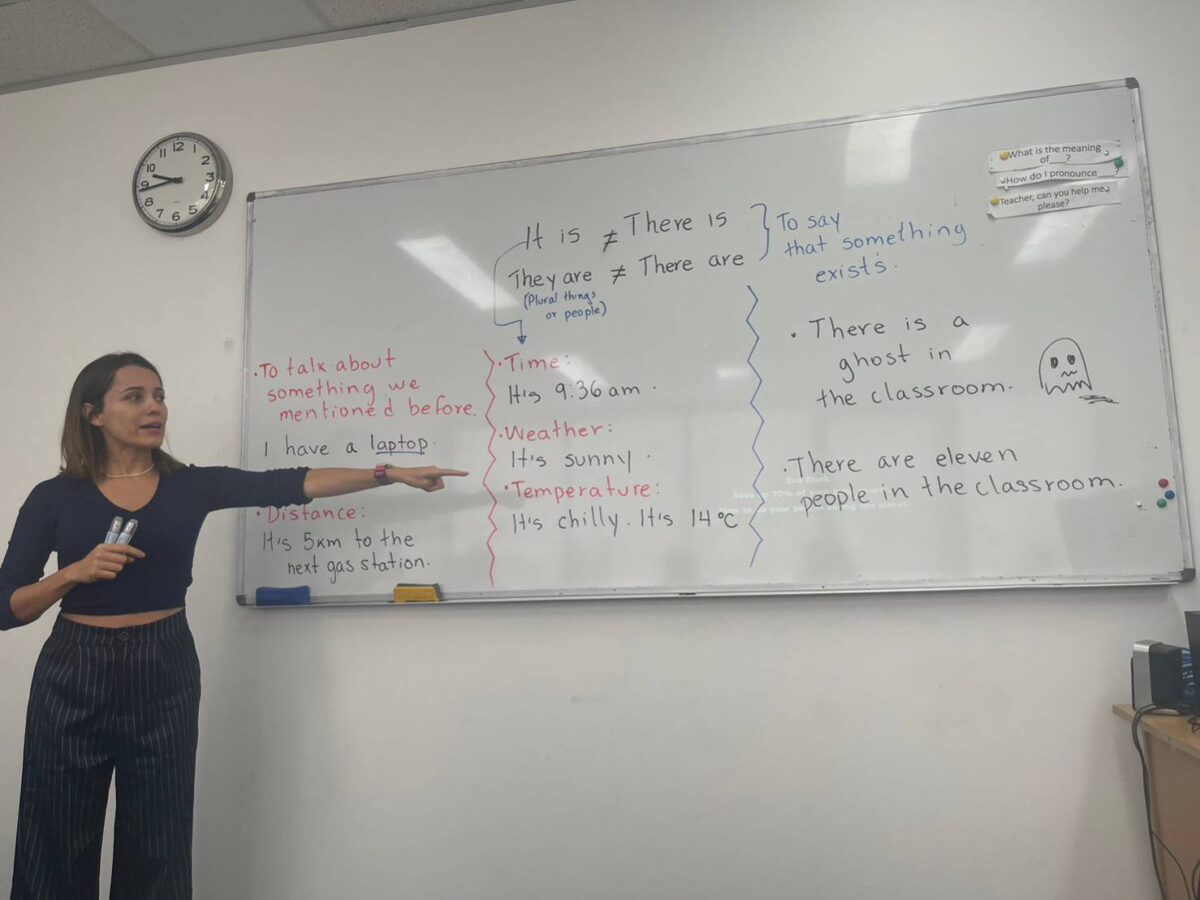 12
1
2
3
4
5
6
7
8
9
10
11
What is the meaning
of___?
How do I pronounce___?
Teacher, can you help me
please?
It is ≠ There is
They are ≠ There are
(Plural things
or people)
To say
that something
exists.
• To talk about
something we
mentioned before.
I have a laptop.
• Distance:
It's 5km to the
next gas station.
• Time:
It's 9:36 am.
• Weather:
It's sunny.
• Temperature:
It's chilly. It's 14°C
• There is a
ghost in
the classroom.
• There are eleven
people in the classroom.
Eco Blank